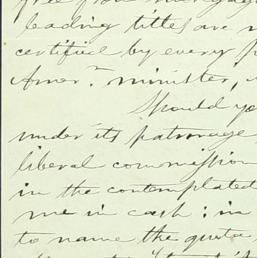 free from mortgage
leading titles are
certified by every
Amer.n minister,
Should yo
under its patronage
liberal commission
in the contemplated
me in cash: in
to name the quota